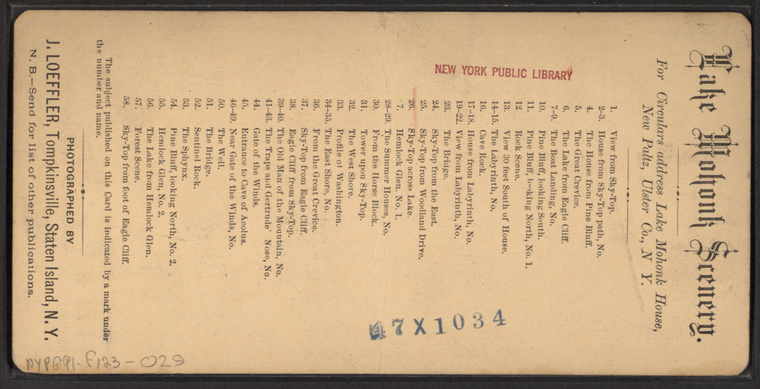 Lake Mohonk Scenery.
For Circulars address Lake Mohonk House,
New Paltz, Ulster Co., N. Y.
1. View from Sky-Top.
2-3. House from Sky-Top path, No.
4. The House from Pine Bluff.
5. The Great Crevice.
6. The Lake from Eagle Cliff.
7-9. The Boat Landing, No.
10. Pine Bluff, looking South.
11. Pine Bluff, looking North, No. 1.
12. Rock Scene.
13. View 30 feet South of House.
14-15. The Labyrinth, No.
16. Cave Rock.
17-18. House from Labyrinth, No.
19-22. View from Labyrinth, No.
23. The Bridge.
24. Sky-Top from the East.
25. Sky-Top from Woodland Drive.
26. Sky-Top across Lake.
7. Hemlock Glen, No. 1.
28-29. The Summer Houses, No.
30. From the Horse Block.
31. Tower upon Sky-Top.
32. The West Shore.
33. Profile of Washington.
34-35. The East Shore, No.
36. From the Great Crevice.
37. Sky-Top from Eagle Cliff.
38. Eagle Cliff from Sky-Top.
39-40. The Old Man of the Mountain, No.
41-43. The Traps and Gertrude' Nose, No.
44. Gate of the Winds.
45. Entrance to Cave of Aeolus.
46-49. Near Gate of the Winds, No.
50. The Well.
51. The Bridge.
52. Sentinel Rock.
53. The Sphynx.
54. Pine Bluff, looking North, No. 2.
55. Hemlock Glen, No. 2.
56. The Lake from Hemlock Glen.
57. Forest Scene.
58. Sky-Top from foot of Eagle Cliff.
The subject published on this Card is indicated by a mark under
the number and name.
PHOTOGRAPHED BY
J. LOEFFLER, Tompkinsville, Staten Island, N. Y.
N. B.—Send for list of other publications.
NEW YORK PUBLIC LIBRARY
47X1034
NYPG91-F123-029